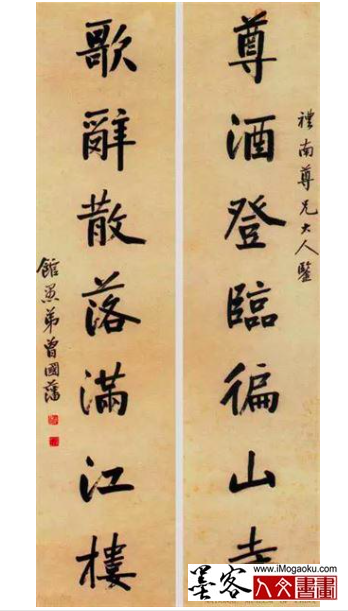 禮南尊兄大人鑒
尊酒登臨徧山寺
歌辭散落滿江樓
館愚弟曾國藩
墨客
www.iMogaoku.com
人文書畫